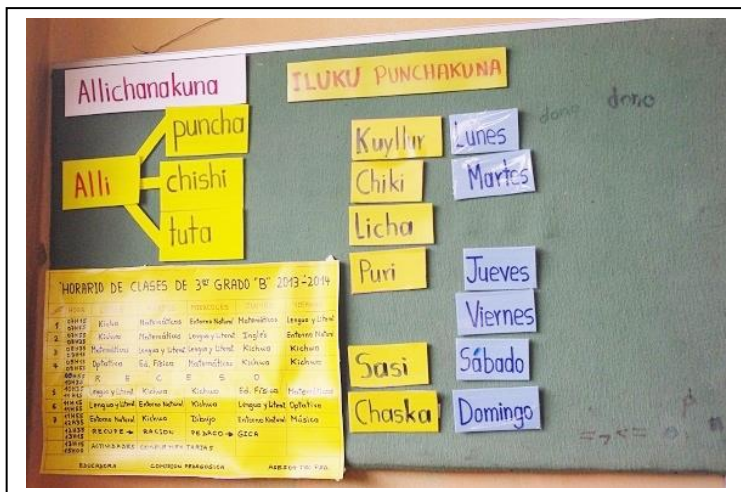 Allichanakuna
Alli
puncha
chishi
tuta
ILUKU PUNCHAKUNA
Kuyllur Lunes
Chiki Martes
Licha
Puri Jueves
Viernes
Sasi Sábado
Chaska Domingo
dono dono
HORARIO DE CLASES DE 3ER GRADO "B" 2013-2014
1 Kichwa Matemáticas Entorno Natural Matemáticas Lengua y Literat
2 Kichwa Matemáticas Lengua y Literat Inglés Entorno Natural
3 Matemáticas Lengua y Literat Lengua y Literat Kichwa Kichwa
4 Optativa Ed. Física Matemáticas Kichwa Kichwa
R E C E S O
5 Lengua y Literat Kichwa Kichwa Ed. Física Matemáticas
6 Lengua y Literat Entorno Natural Kichwa Lengua y Literat Optativa
7 Entorno Natural Kichwa Dibujo Entorno Natural Música
RECUPE → RACION PEDAGO → GICA
ACTIVIDADES COMPLEMENTARIAS
EDUCADORA COMISIÓN PEDAGÓGICA